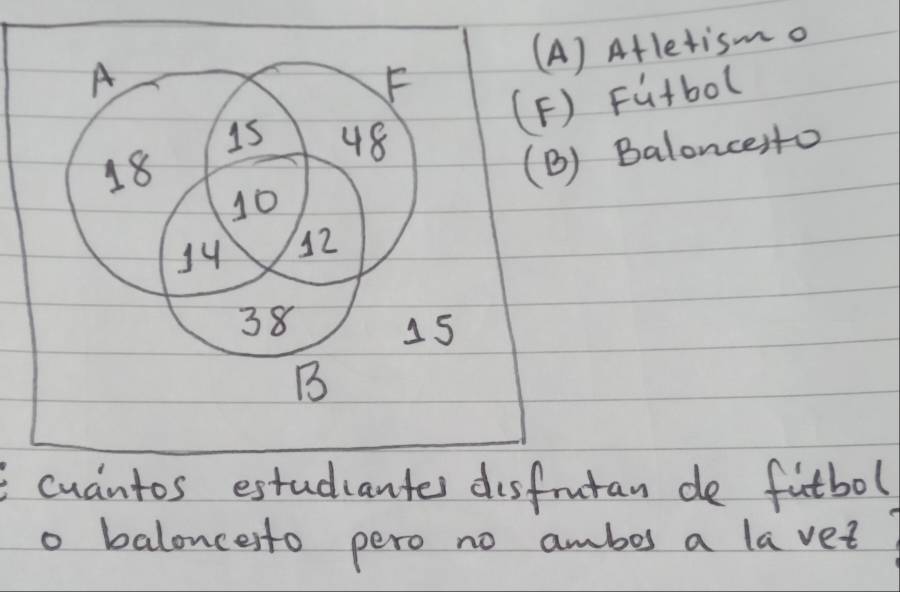 A
F
15
48
18
10
14
12
38
15
B
(A) Atletismo
(F) Fútbol
(B) Baloncesto
¿ cuántos estudiantes disfrutan de fútbol
o baloncesto pero no ambos a la vez?